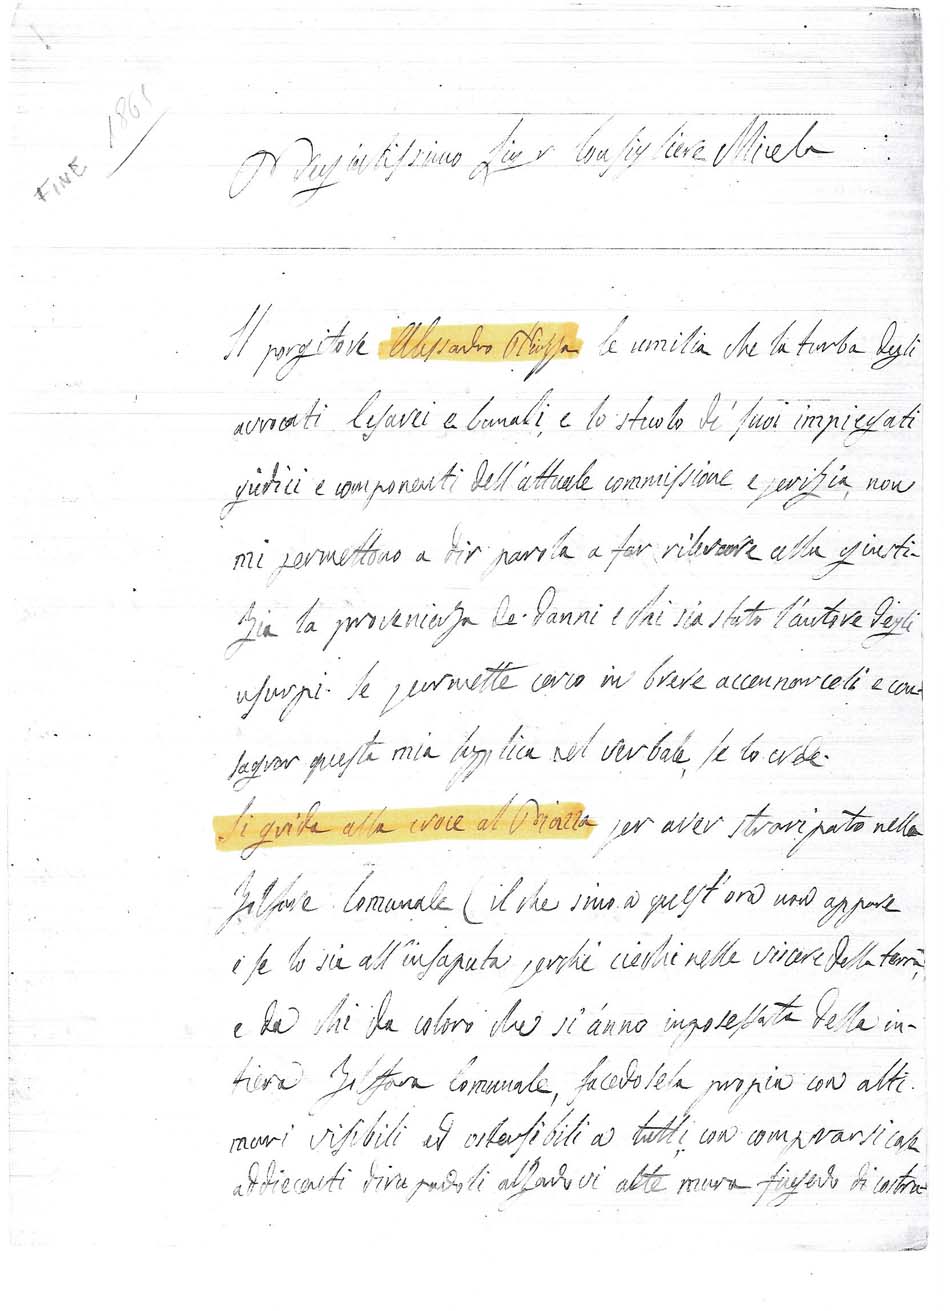 FINE 1865
Pregiatissimo Sig.r Consigliere Micela
Il porgitore Alessandro Piazza le umilia che la turba degli
avvocati Cesarei e banali, e lo stuolo de' suoi impiegati
giudici e componenti dell'attuale commissione e perizia, non
mi permettono a dir parola a far rilevare alla giusti-
zia la provenienza de' danni e chi sia stato l'autore degli
usurpi. Se permette cerco in breve accennarceli e con-
sagrar questa mia supplica nel verbale, se lo crede.
Si grida alla croce al Piazza per aver straripato nella
Zolfare Comunale (il che sino a quest'ora non appare
e se lo sia all'insaputa perché ciechi nelle viscere della terra,
e da chi da coloro che si ànno impossessata della in-
tiera Zolfara Comunale, facedosela propia con alti
muri visibili ed ostensibili a tutti, con comprarsi case
addiecenti dirupadoli alzadovi alte mura fingedo di costru-